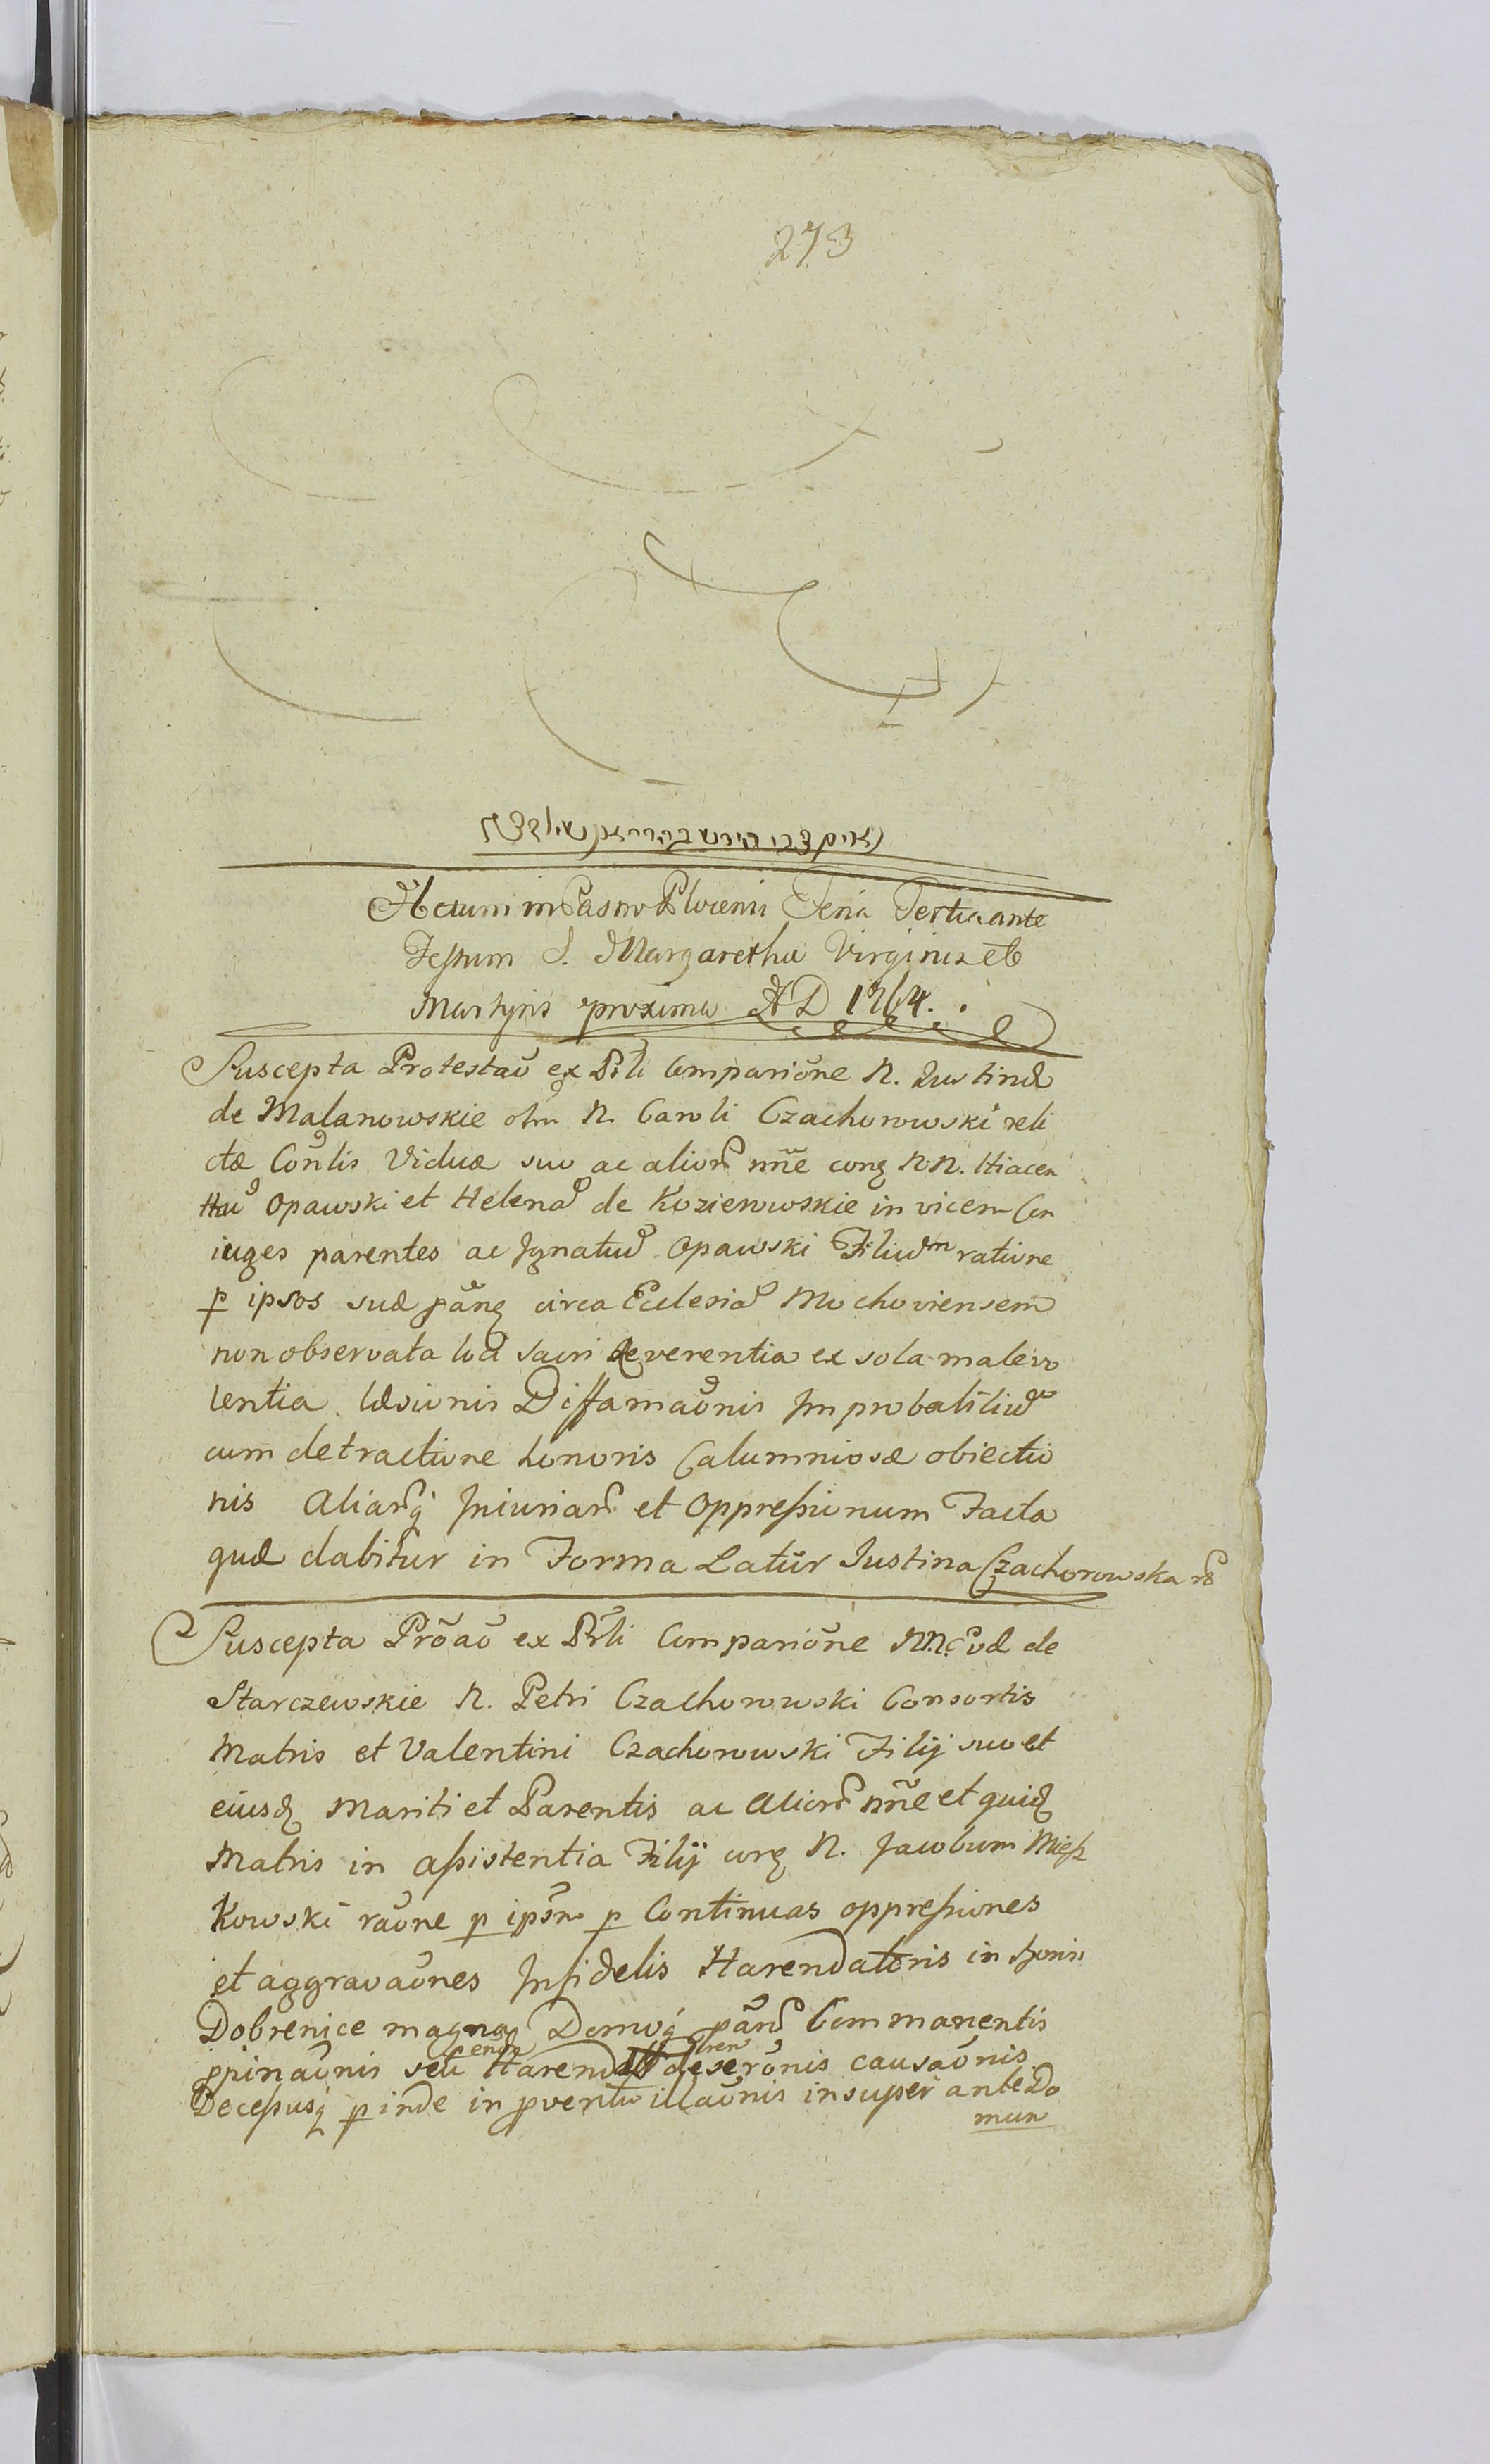 273
נאום צבי הירש בהר״ר
Actum in Castro Plocensi Feria Tertia ante
Festum S. Margarethæ Virginis et
Martyris proxima AD 1764.
Suscepta Protestaō ex Prli Comparic̄ne N. Justinæ
de Malanowskie olm N. Caroli Czachorowski reli
ctæ Con̄lis Viduæ suo ac alior nn̄e conq NN. Hiacen
tu Opawski et Helena de Kozierowskie in vicem Con
iuges parentes ac Ignatiu Opawski Filium ratione
p ipsos suæ pānq circa Ecclesia Mochoviensem
non observata loci sacri Reverentia ex sola malevo
lentia læsionis Diffamaōnis Improbati
cum detractione honoris Calumniosæ obiectio
nis Aliarq Iniuriar et Oppressionum Facta
quæ dabitur in Forma Latūr Justina Czachorowska
Suscepta Prōaō ex Prli Comparic̄ne NN. Evæ de
Starczewskie N. Petri Czachorowski Consortis
Matris et Valentini Czachorowski Filij suo et
eiusq Mariti et Parentis ac Alior nn̄e et quiq
Matris in assistentia Filij conq N. Jacobum Miesz
kowski raōne p ipsm p Continuas oppressiones
et aggravaōnes Infidelis Harendatoris in bonis
Dobrenice magna Domoq pān Commanentis
ppinaōnis seu Harend deserōnis causaōnis
Decessusq p inde in pventu illaōnis insuper ante Do
mum